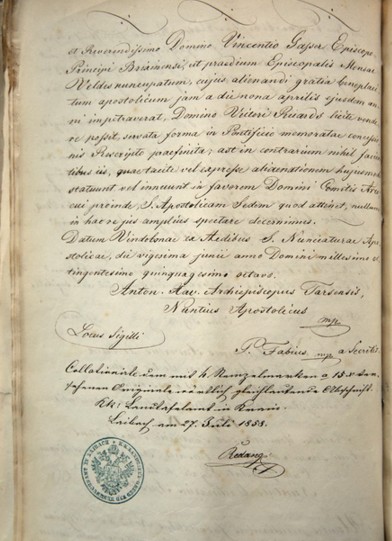 et Reverendissimo Domino Vincentio Gasser Episcopo
Principi Brixinensi, ut praedium Episcopalis Mensae
Veldes nuncupatum, cujus alienandi gratia
tum apostolicum jam a die nona aprilis ejusdem an
ni impetraverat, Domino Victori Ruards licite vende
re possit, servata forma in Pontificio memoratae concessio
nis Rescripto praefinita; ast in contrarium nihil facien
tibus iis, quae tacite vel expresse alienationem hujusmodi
statuunt vel innuunt in favorem Domini Comitis
cui proinde, S. Apostolicam Sedem quod attinet, nullum
in hac re jus amplius spectare decernimus.
Datum Vindobonae ex Aedibus S. Nunciaturae Apo
stolicae, die vigesima junii anno Domini millesimo oc
tingentesimo quinquagesimo octavo.
Anton. Archiepiscopus Tarsensis,
Nuntius Apostolicus
mp
Locus Sigilli
P. Fabius mp a Secretis
dem mit
Originale gleichlautende
KK: Landtafelamt in Krain
Laibach am 27. Juli 1858.